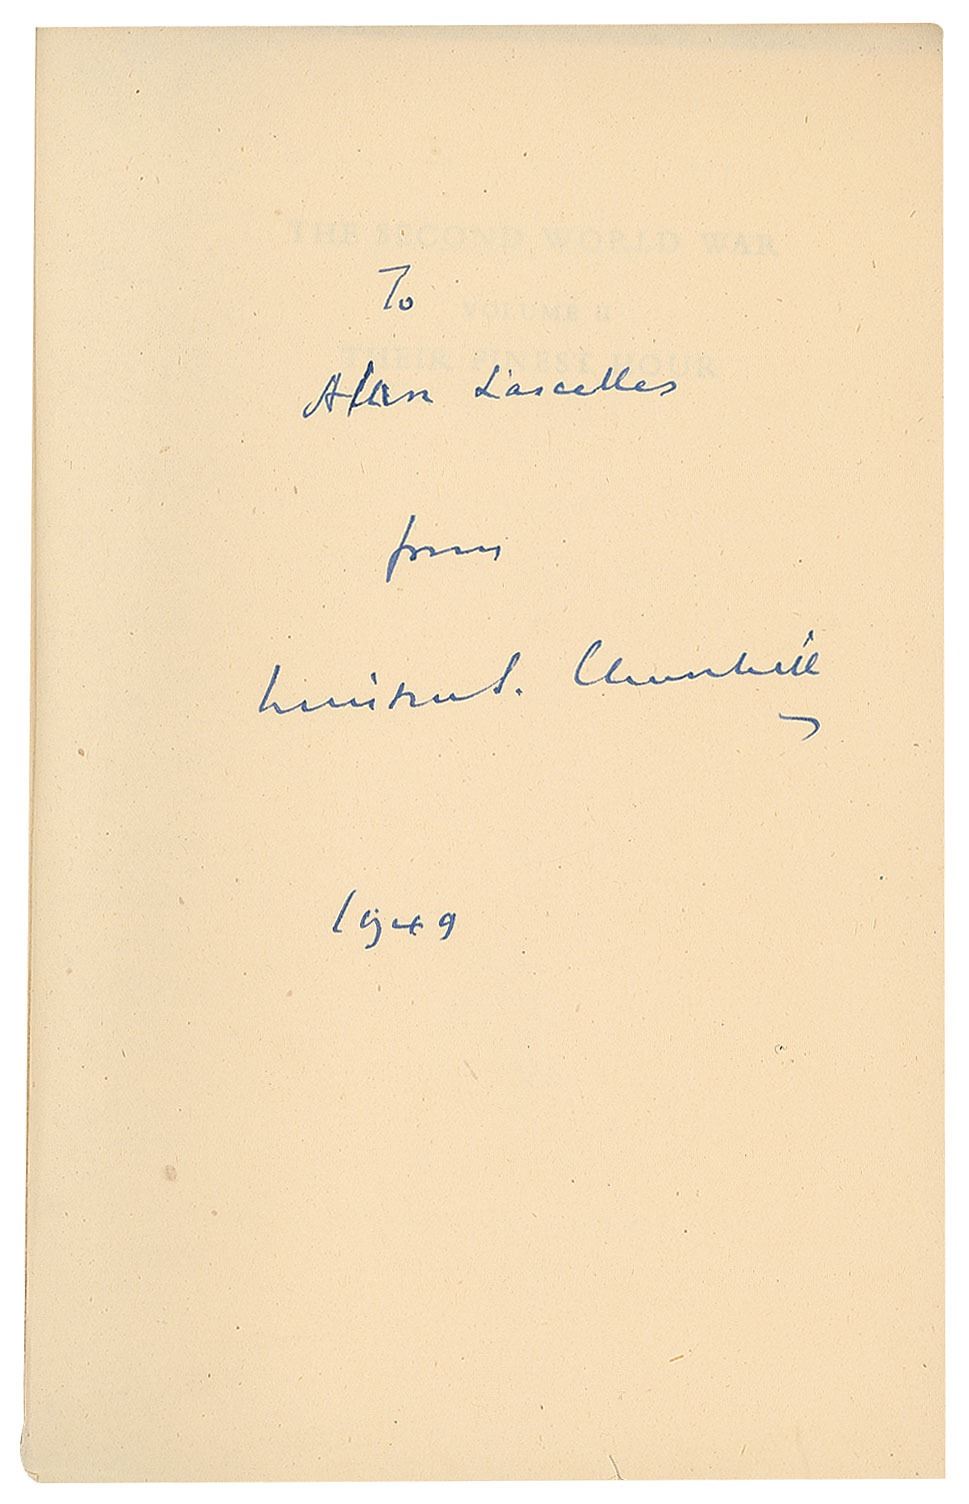 THE SECOND WORLD WAR
To
VOLUME II
THEIR FINEST HOUR
Alan Lascelles
from
Winston S. Churchill
1949